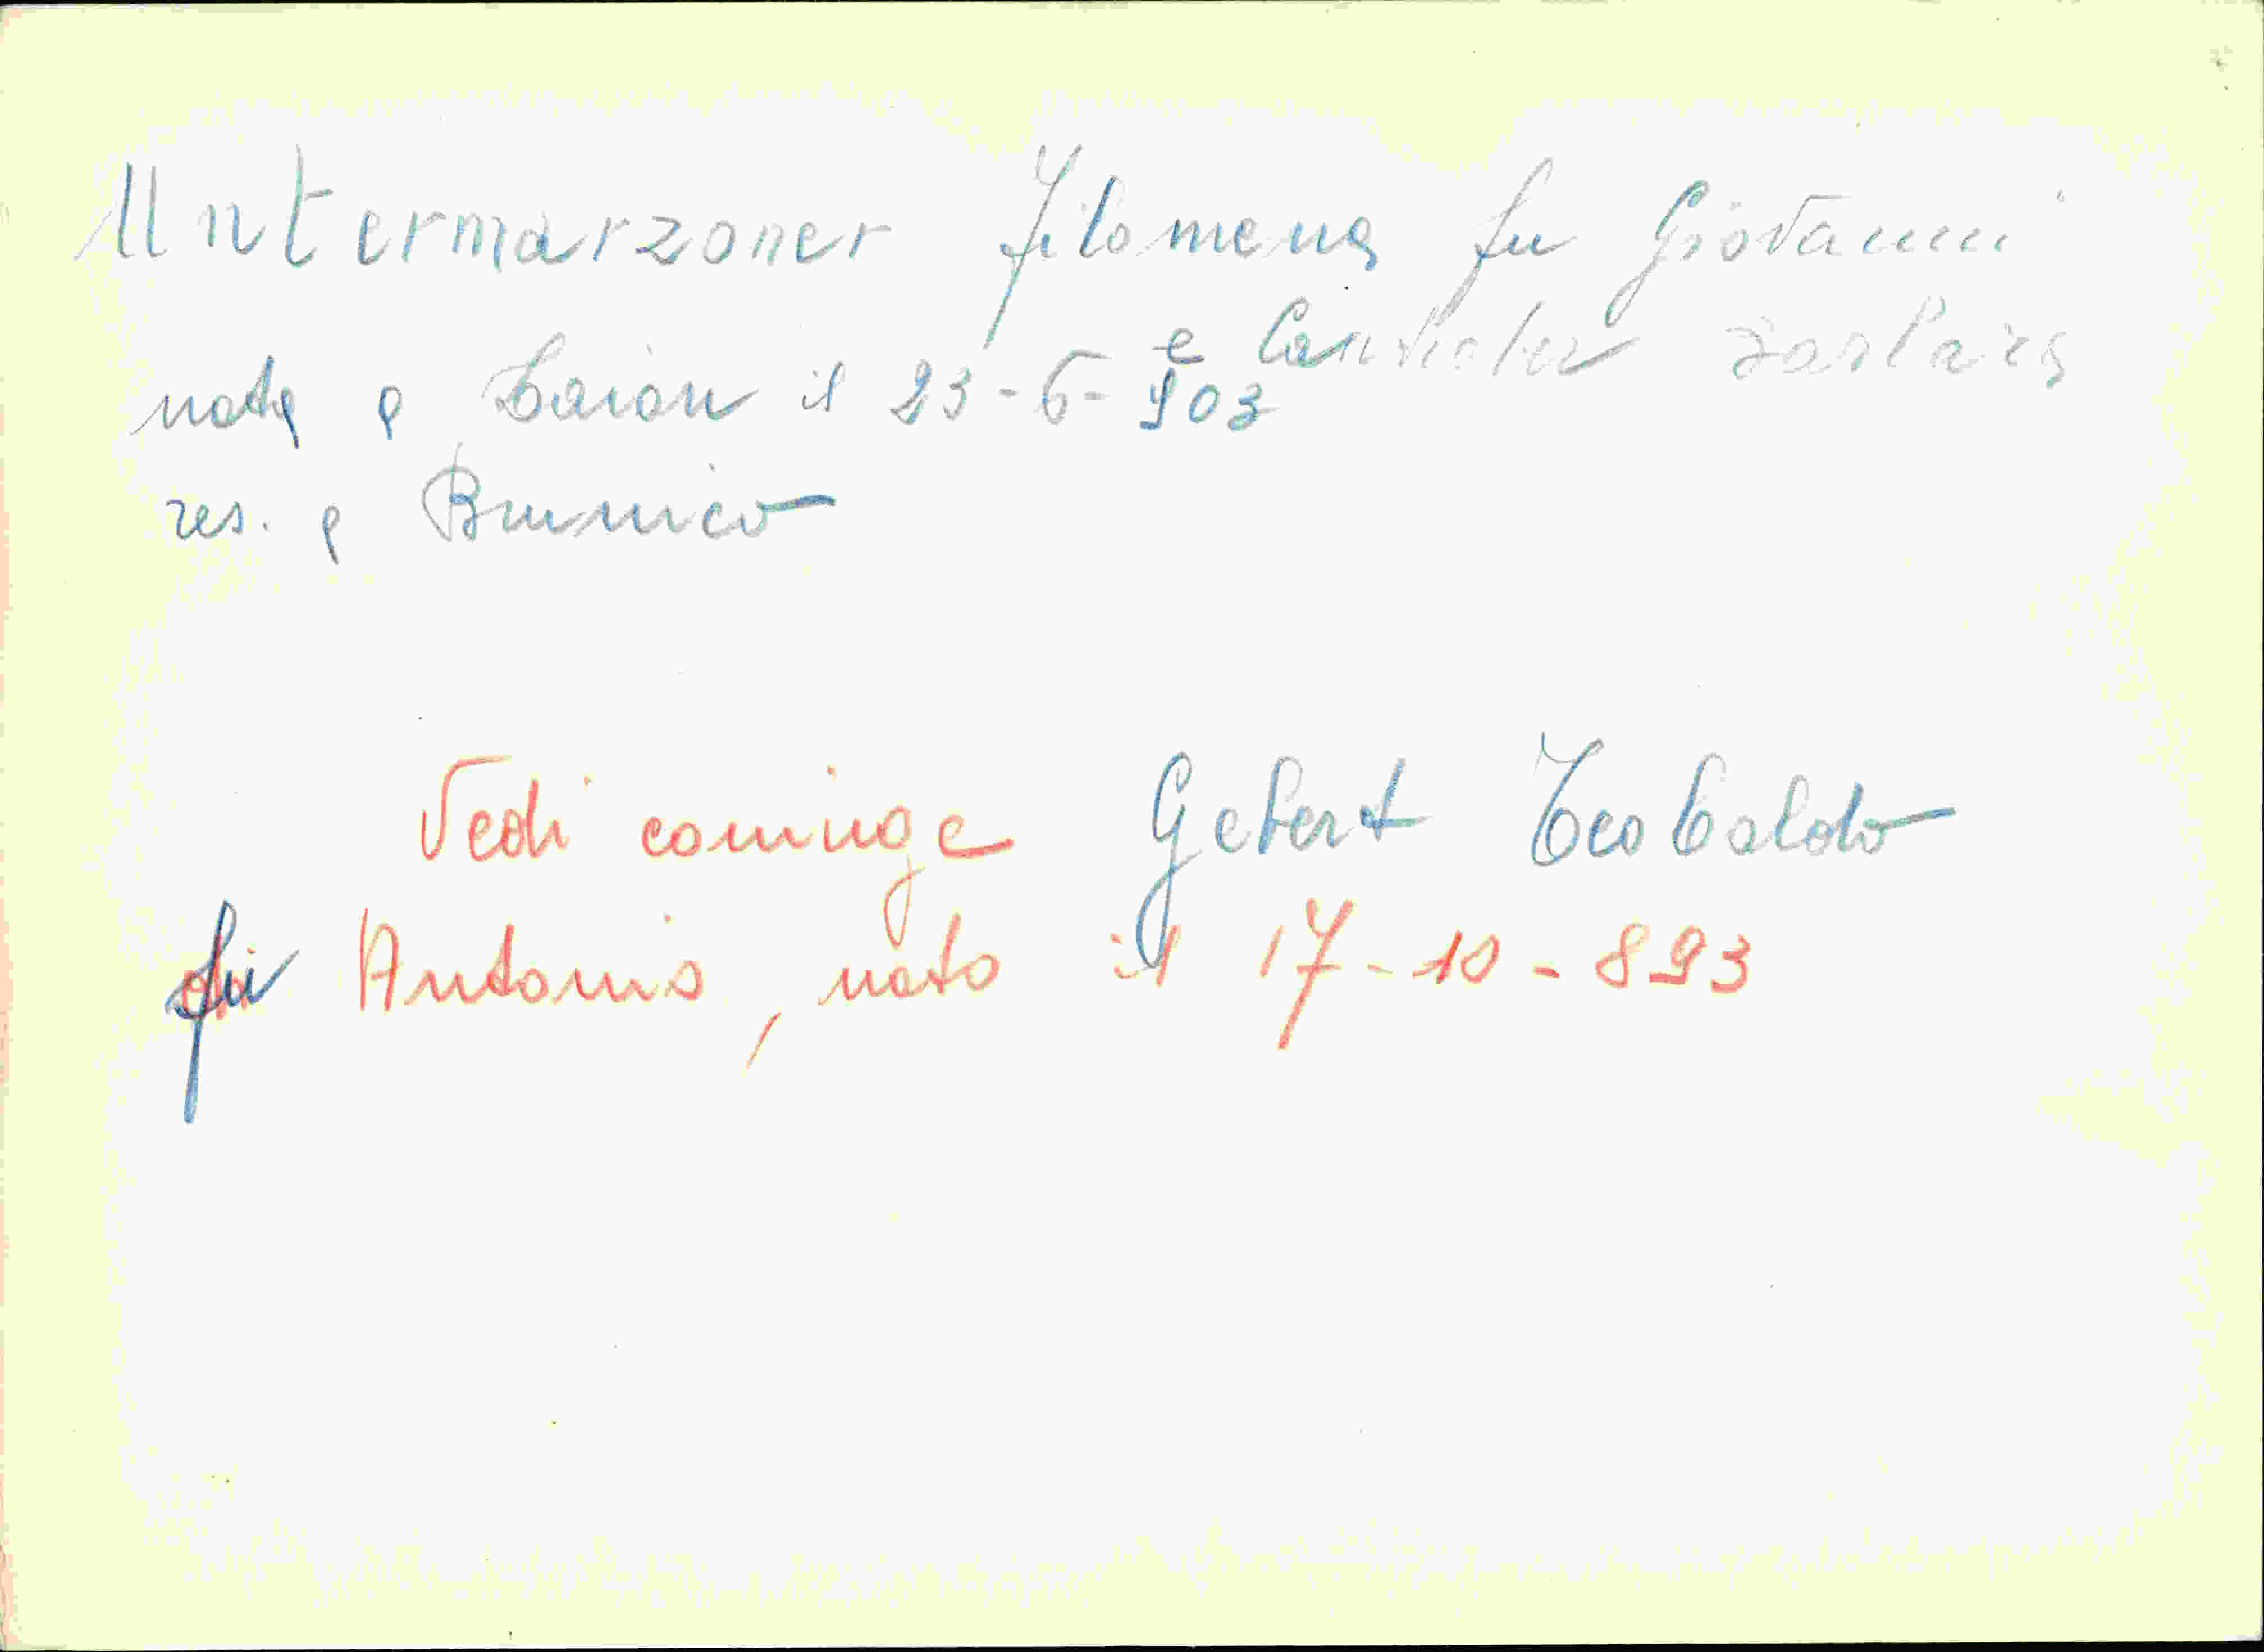 Untermarzoner Filomena fu Giovanni
e
nata a Laion il 23-6-903
res. a Brunico
Vedi coniuge Gebert Teobaldo
fu Antonio, nato il 17-10-893